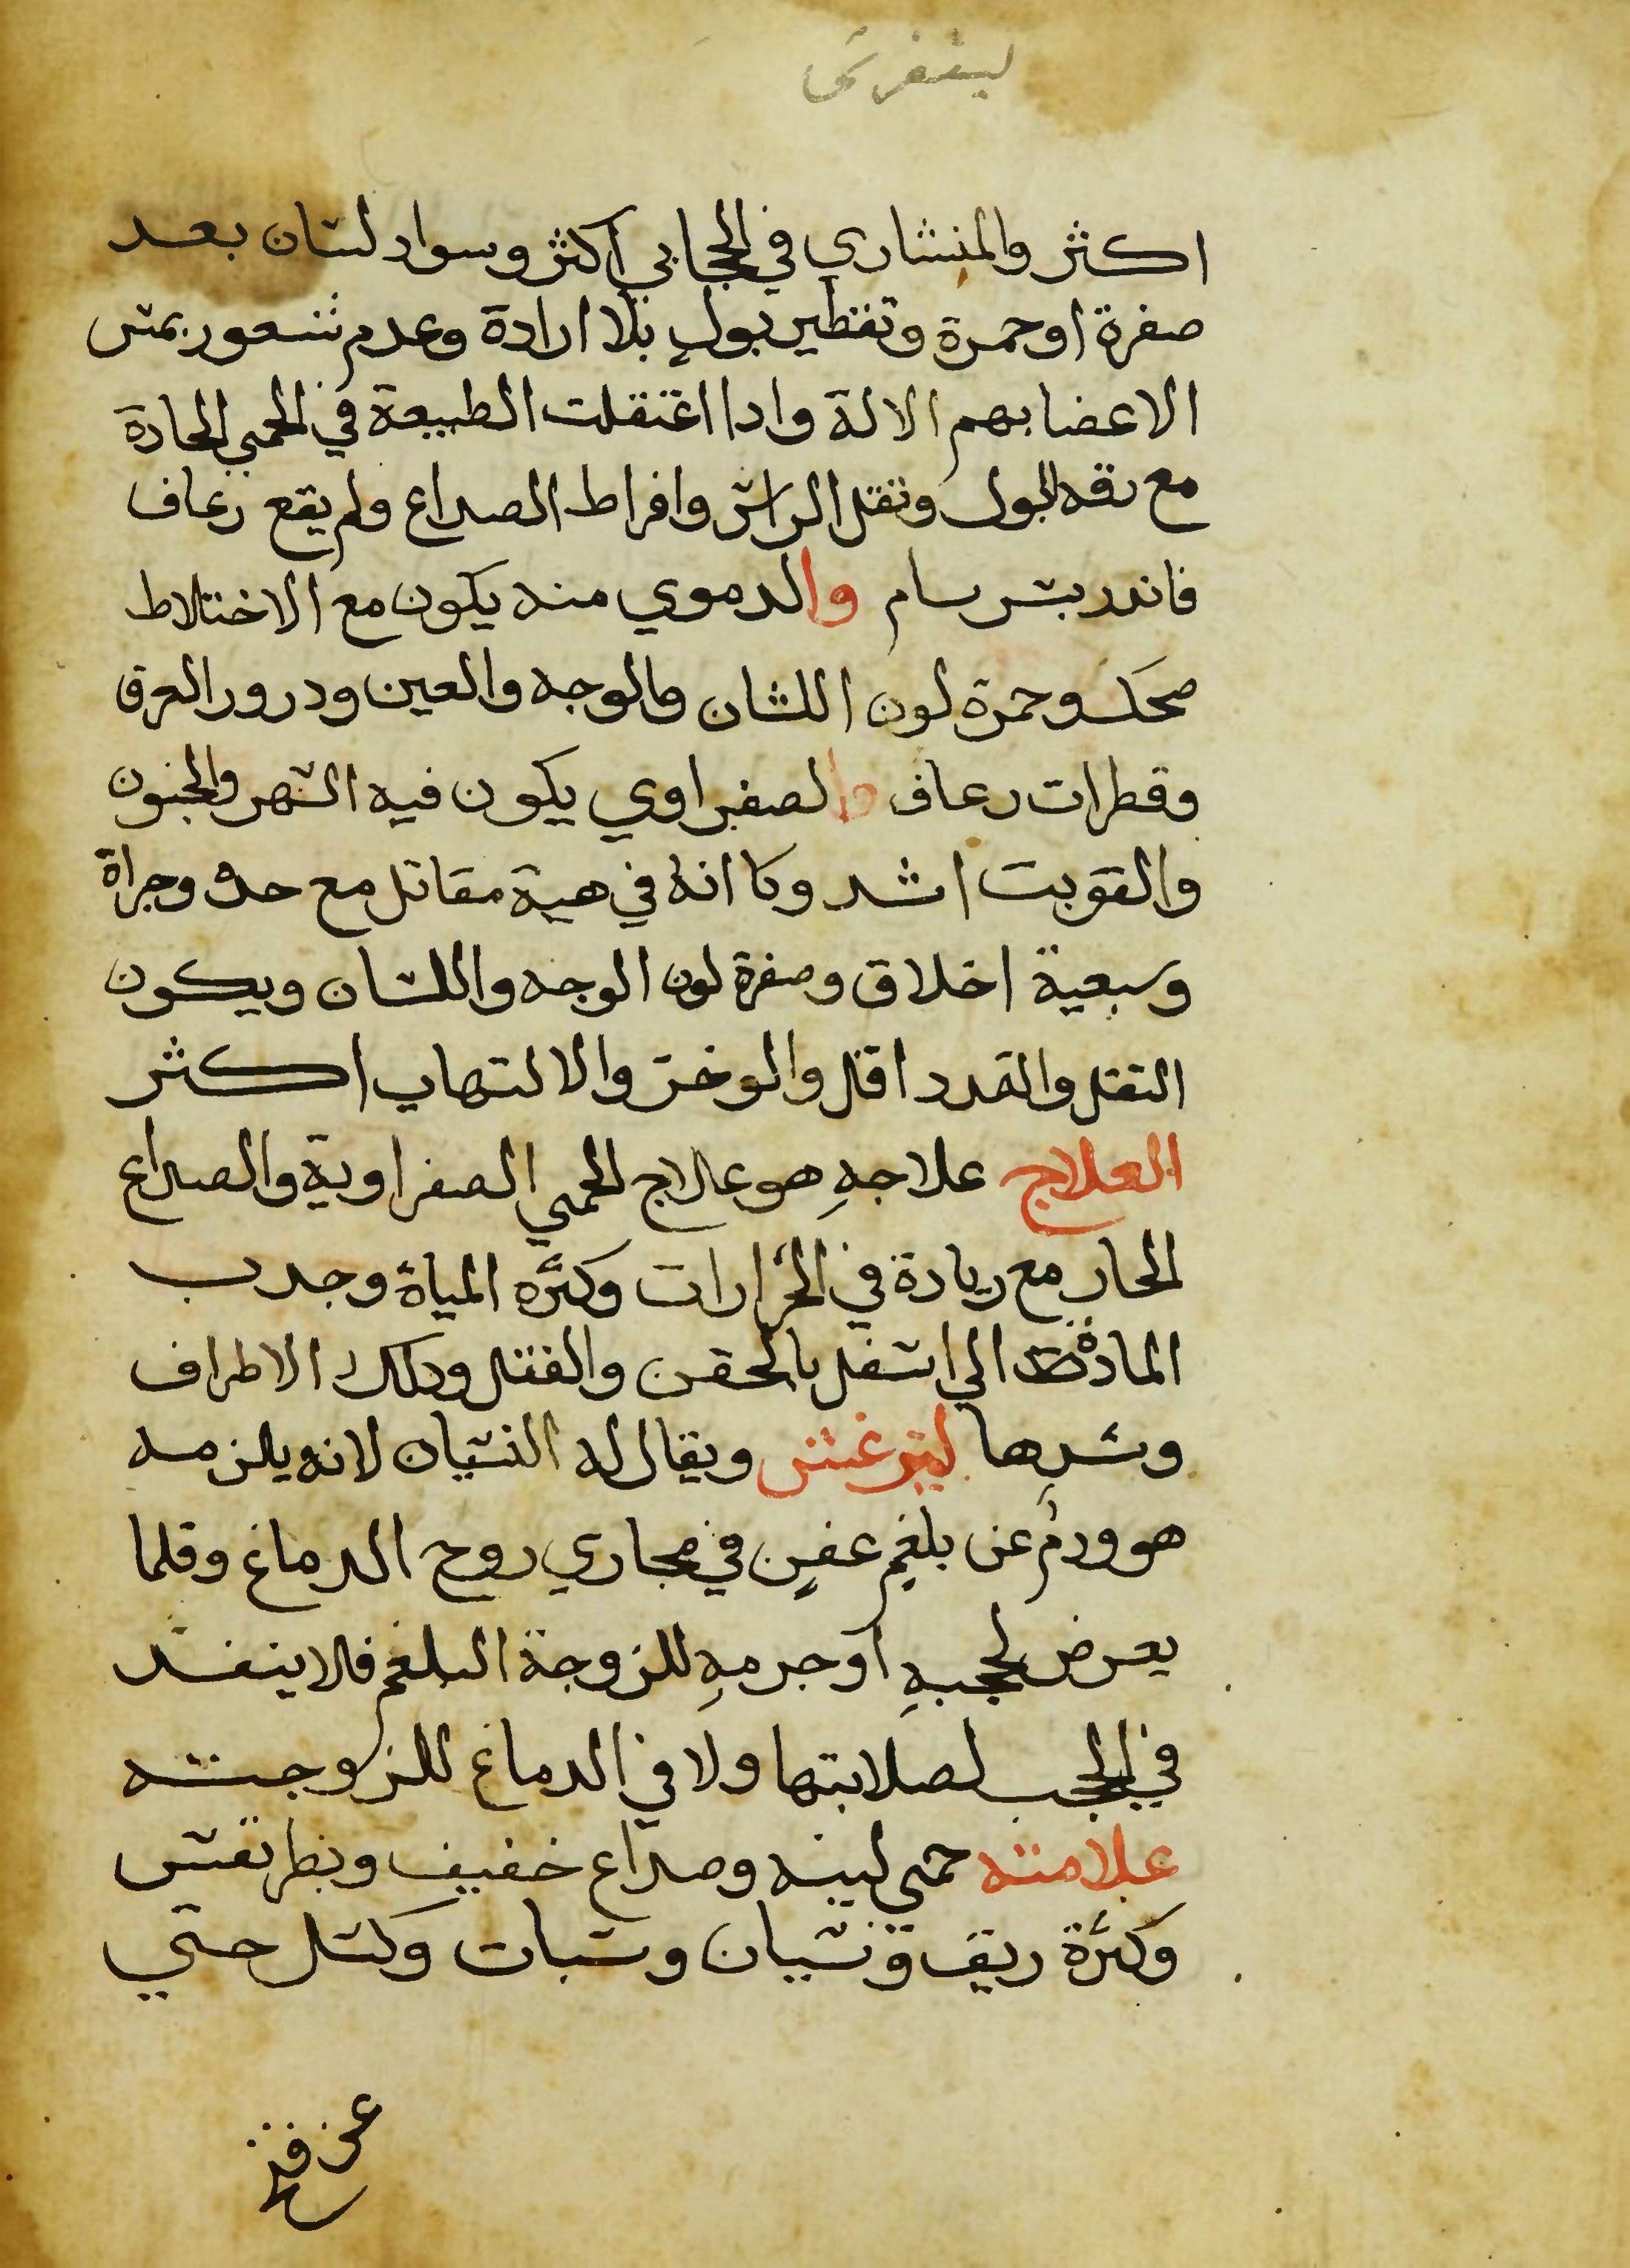 اكثر والمنشاري في الحجابي اكثر وسواد لسان بعد
صفرة او حمرة وتقطير بول بلا ارادة وعدم شعور بمس
الاعضا بهم الالة وادا اغتقلت الطبيعة في الحمي الحادة
مع رقه البول وتقل الراس وافراط الصداع ولم يقع رعاف
فاندر بسرسام والدموي منه يكون مع الاختلاط
ضحك وحمرة لون اللسان والوجه والعين ودرور العرق
وقطرات رعاف والصفراوي يكون فيه السهر والجنون
والتوبت اشد وكاانه في هية مقاتل مع حدة وجراة
وسبعية اخلاق وصفرة لون الوجه واللسان ويكون
التقل والتمدد اقل والوخز والالتهاب اكثر
العلاج علاجهِ هو علاج الحمي الصفراوية والصداع
الحار مع زيادة في الخرارات وكثره المياة وجدب
المادة الي اسفل بالحقن والفتل ودلك الاطراف
وشدها ليترغس ويقال له النسيان لانه يلزمه
هو ورم عن بلغمٍ عفنٍ في مجاري روح الدماغ وقلما
يعرض لحجبهِ او جرمهِ للزوجة البلغم فلا ينفد
في الحجب لصلابتها ولا في الدماغ للزوجته
علامته حمي لينه وصداع خفيف وبطر نفس
وكثرة ريق ونسيان وسبات وكسل حتي